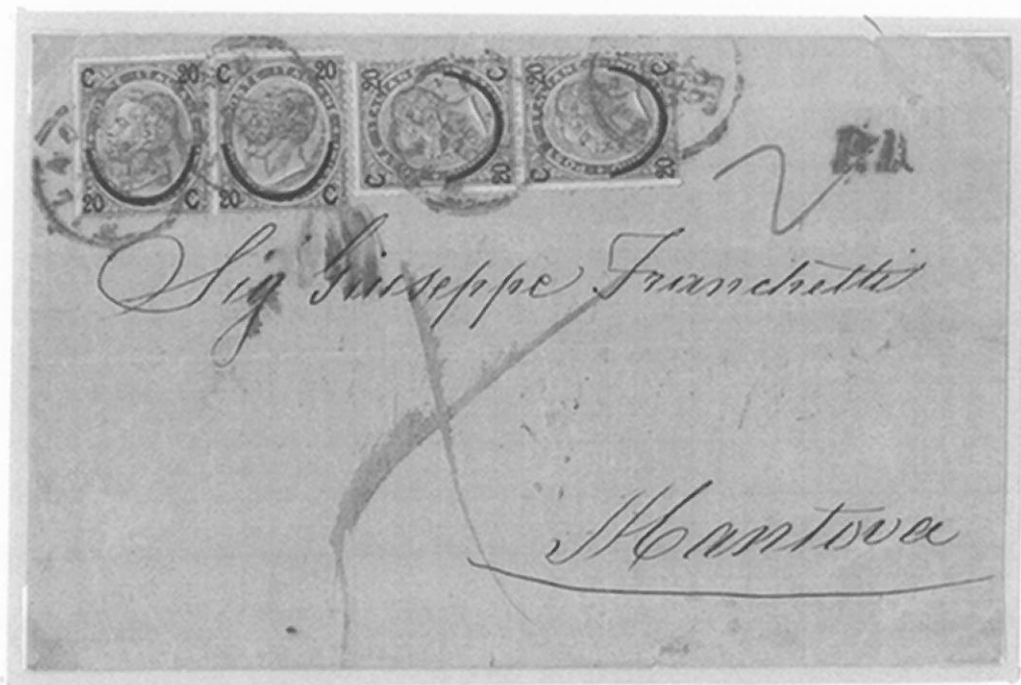 C 20
20 C
C 20
20 C
C 20
C 20
C 20
C 20
P.D.
Sig Giuseppe Franchetti
Mantova